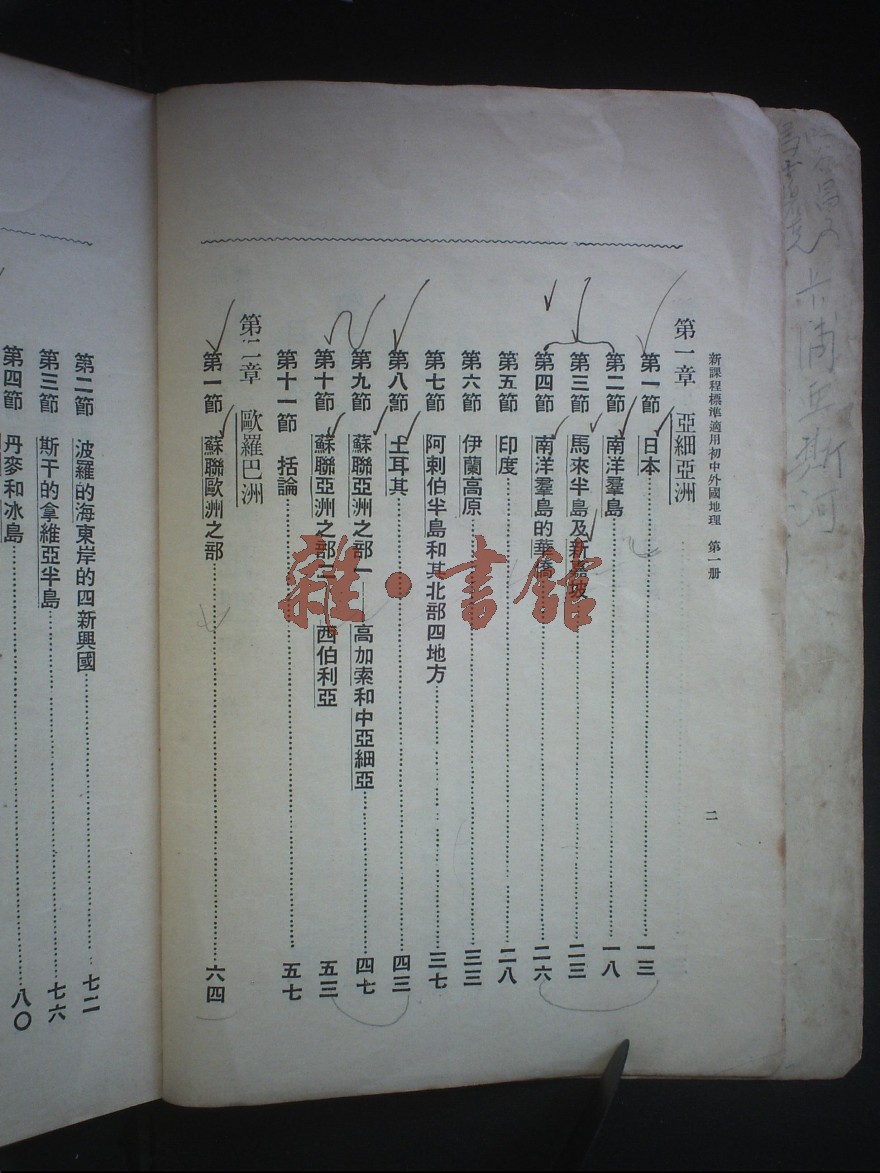 新課程標準適用初中外國地理　第一册
二
第一章　亞細亞洲
第一節　日本……一三
第二節　南洋羣島……一八
第三節　馬來半島及新嘉坡……二三
第四節　南洋羣島的華僑……二六
第五節　印度……二八
第六節　伊蘭高原……三三
第七節　阿剌伯半島和其北部四地方……三七
第八節　土耳其……四三
第九節　蘇聯亞洲之部一　高加索和中亞細亞……四七
第十節　蘇聯亞洲之部二　西伯利亞……五三
第十一節　括論……五七
第二章　歐羅巴洲
第一節　蘇聯歐洲之部……六四
第二節　波羅的海東岸的四新興國……七二
第三節　斯干的拿維亞半島……七六
第四節　丹麥和冰島……八〇
雜·書館